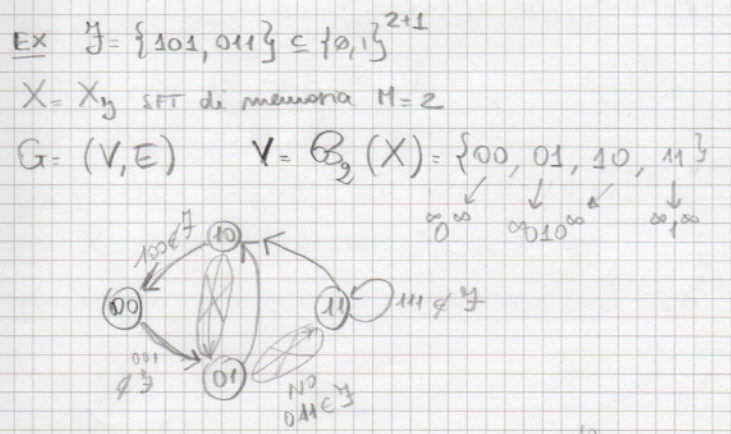 EX ℱ = {101, 011} ⊆ {0,1}^{2+1}
X = X_ℱ SFT di memoria M = 2
G = (V, E) V = ℬ_2(X) = {00, 01, 10, 11}
^∞0^∞ ^∞010^∞ ^∞1^∞
100 ∉ ℱ 10
00 11 111 ∉ ℱ
001 ∉ ℱ 01
NO
011 ∈ ℱ